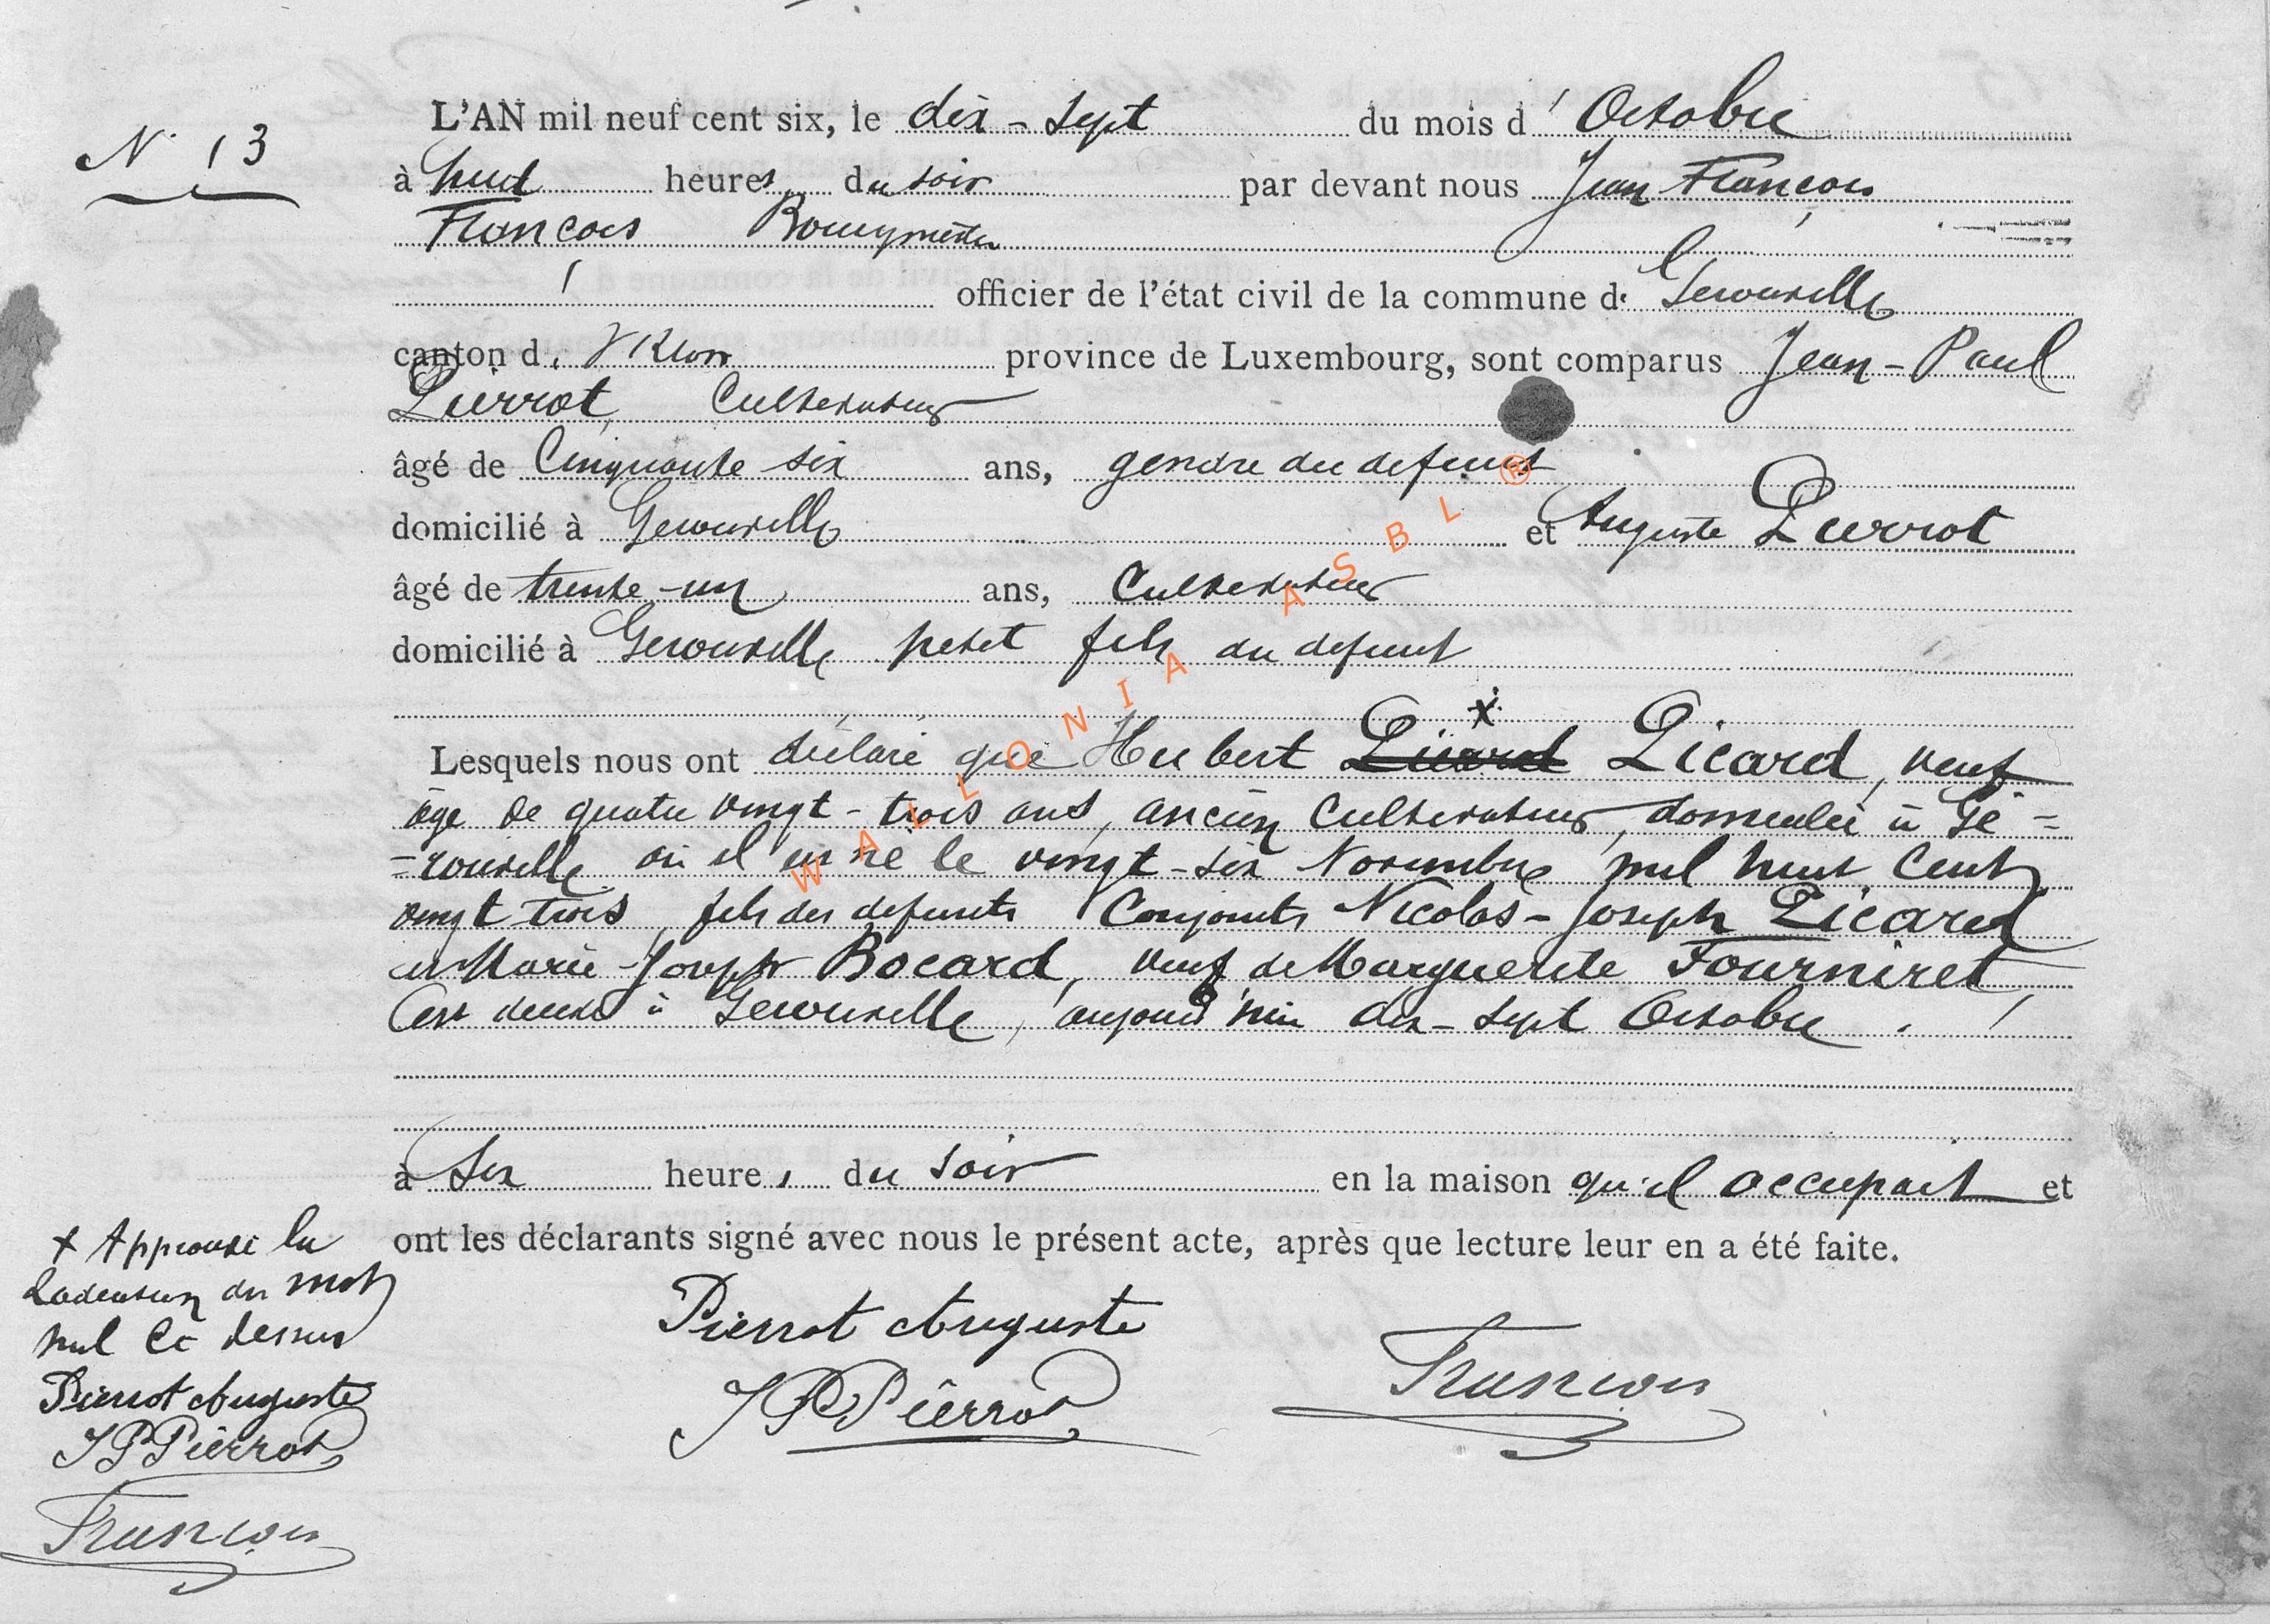 N° 13
L'AN mil neuf cent six, le dix-sept du mois d'Octobre
à huit heures du soir par devant nous Jean François
François Bourgmestre
officier de l'état civil de la commune de Gerouville
canton d. Virton province de Luxembourg, sont comparus Jean-Paul
Pierrot, Cultivateur
âgé de Cinquante six ans, gendre du defunt
domicilié à Gerouville et Auguste Pierrot
âgé de trente-un ans, Cultivateur
domicilié à Gerouville petit fils du defunt
x
Lesquels nous ont déclaré que Hubert Picard, veuf
âge de quatre vingt-trois ans, ancien Cultivateur, domicilié à Gé=
=rouville où il est né le vingt-six Novembre mil huit cent
vingt trois, fils des defunts Conjoints Nicolas-Joseph Picard
et Marie-Joseph Bocard, veuf de Marguerite Fourniret,
est décédé à Gerouville, aujourd'hui dix-sept Octobre.
à Six heures du soir en la maison qu'il occupait et
ont les déclarants signé avec nous le présent acte, après que lecture leur en a été faite.
x Approuvé la
du mot
nul Ci dessus
Pierrot Auguste
JP Pierrot
François
Pierrot Auguste
JP Pierrot
François
WALLONIA ASBL ®